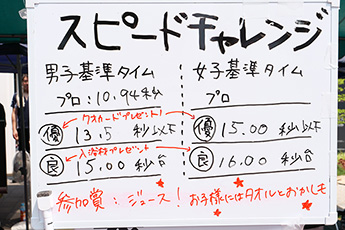 スピードチャレンジ
男子基準タイム
プロ:10.94秒
クオカードプレゼント!
優 13.5 秒以下
入浴剤プレゼント
良 15.00 秒台
女子基準タイム
プロ
優 15.00 秒以下
良 16.00 秒台
参加賞:ジュース! お子様にはタオルとおかしも